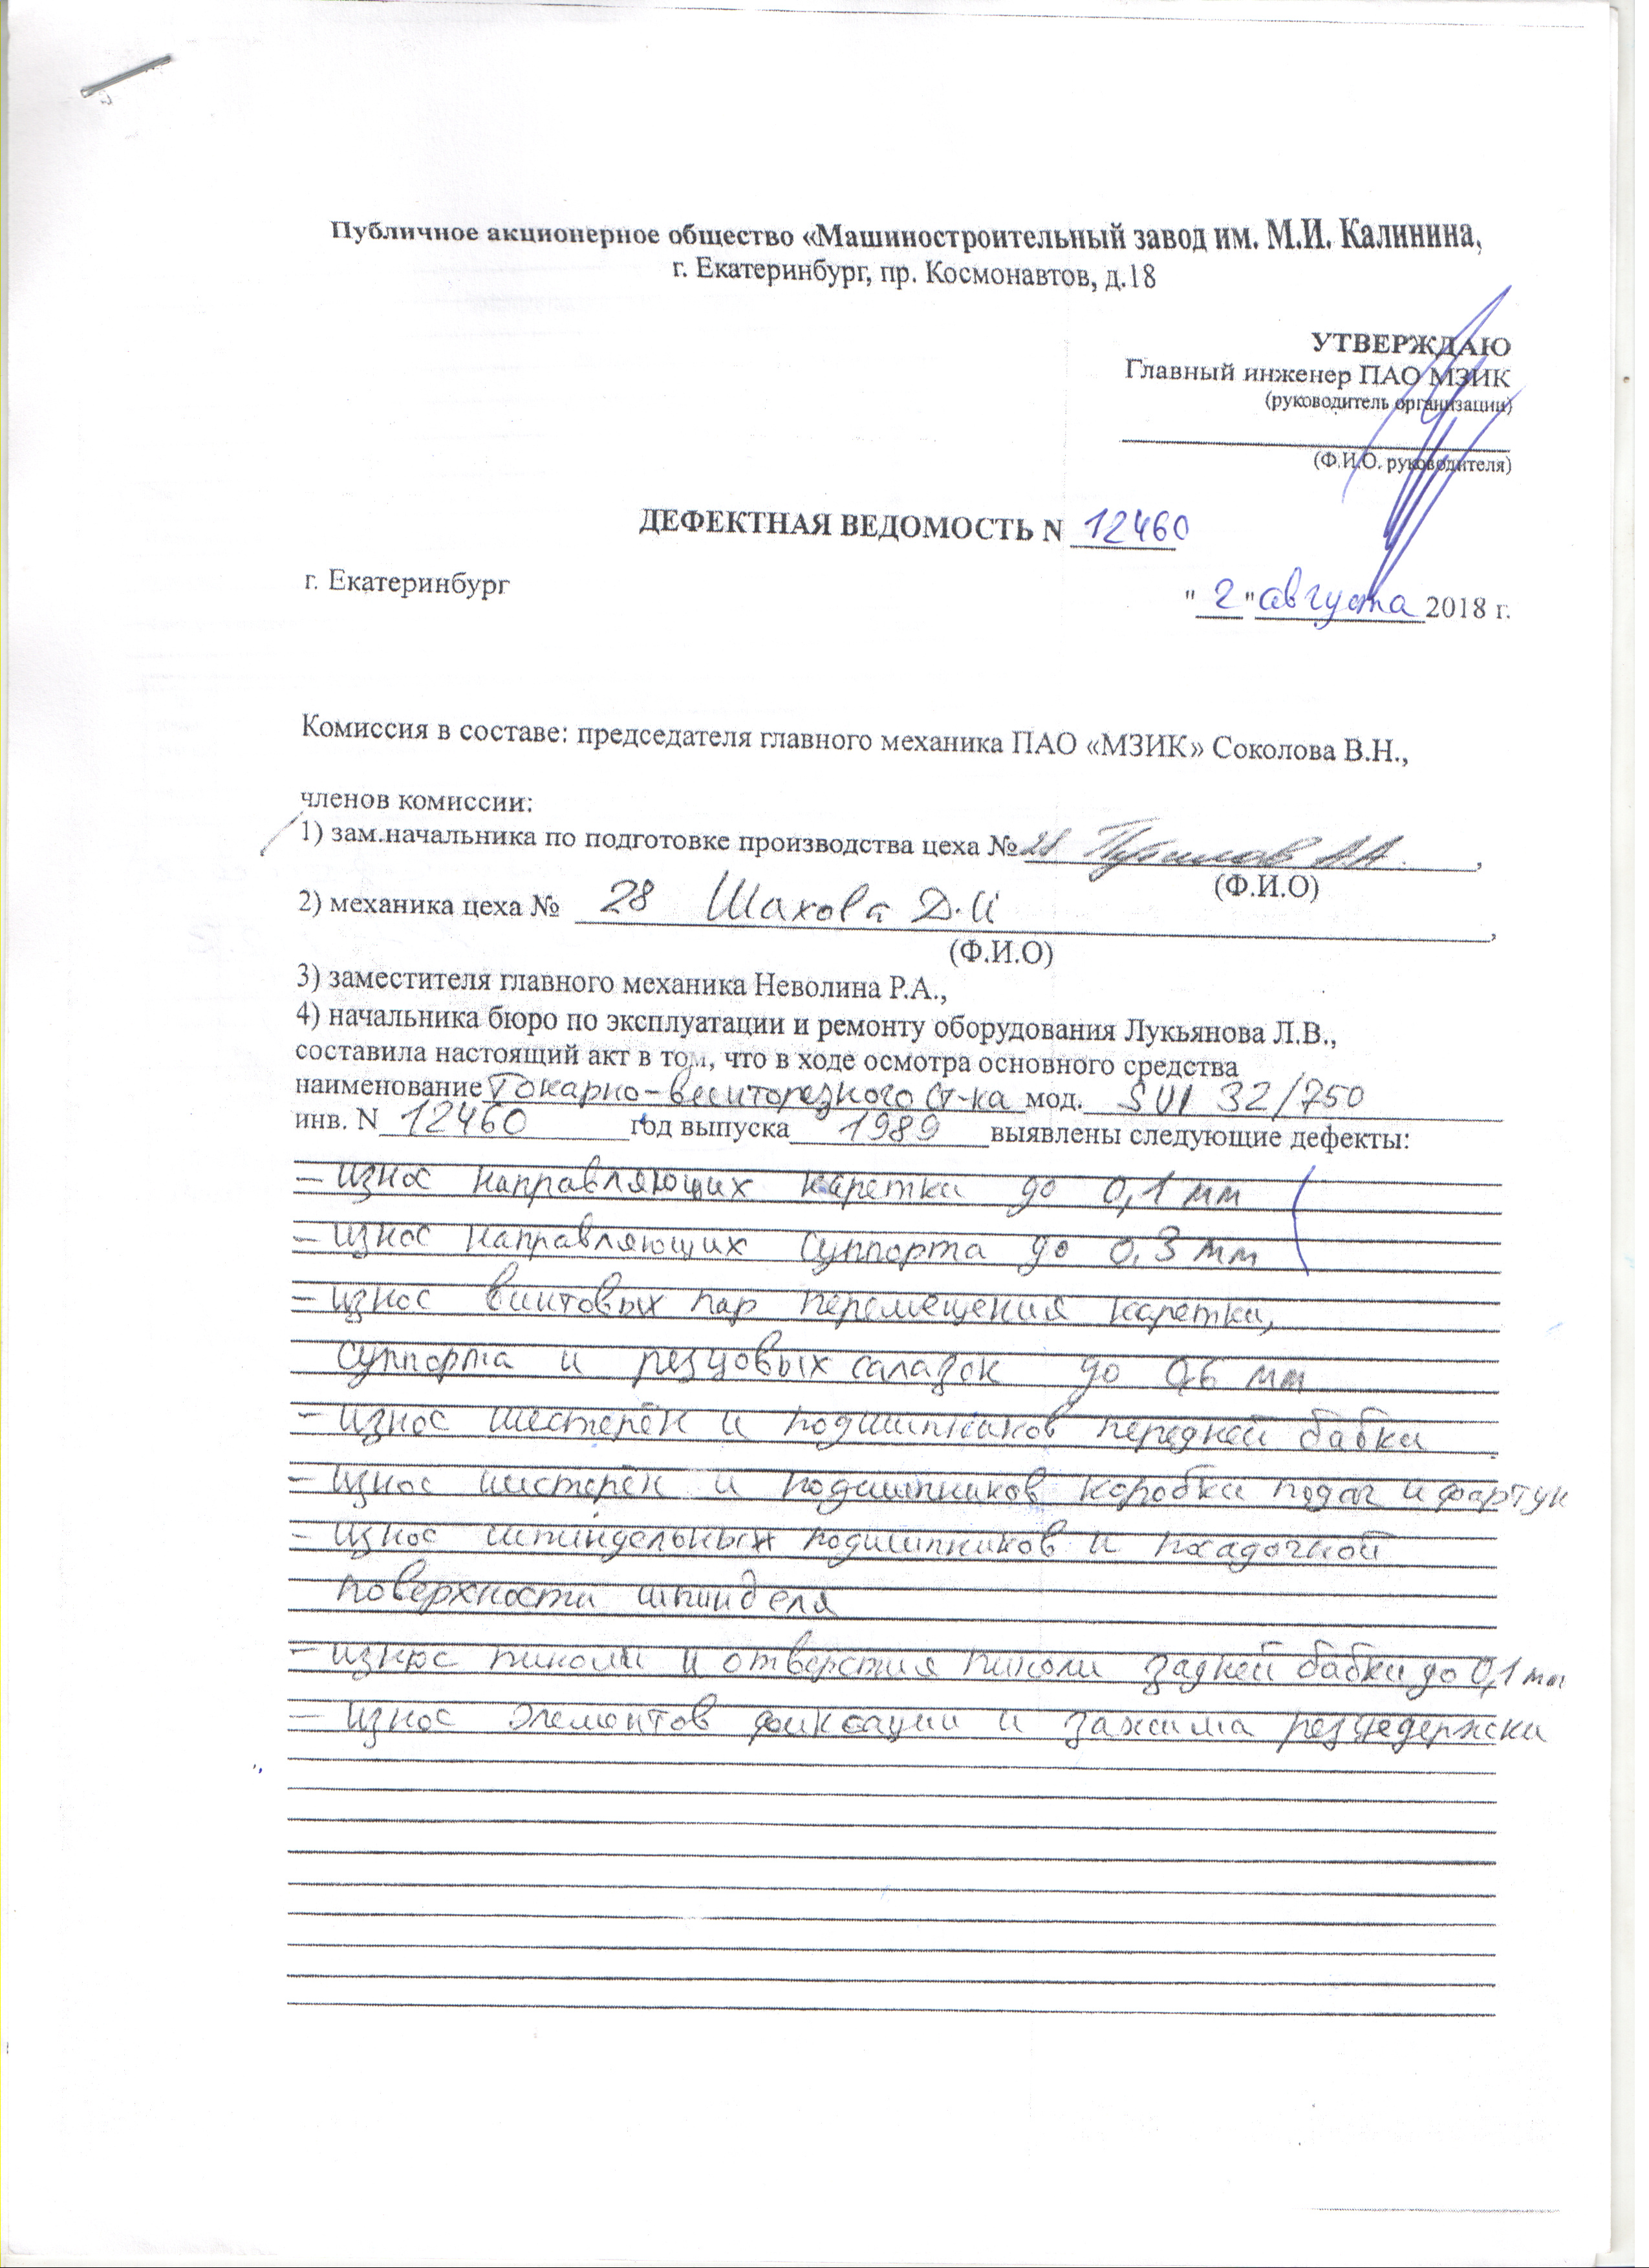 Публичное акционерное общество «Машиностроительный завод им. М.И. Калинина,
г. Екатеринбург, пр. Космонавтов, д.18
УТВЕРЖДАЮ
Главный инженер ПАО МЗИК
(руководитель организации)
(Ф.И.О. руководителя)
ДЕФЕКТНАЯ ВЕДОМОСТЬ N 12460
г. Екатеринбург "2" августа 2018 г.
Комиссия в составе: председателя главного механика ПАО «МЗИК» Соколова В.Н.,
членов комиссии:
1) зам.начальника по подготовке производства цеха № 28 А.А.,
(Ф.И.О)
2) механика цеха № 28 Шахова Д.И,
(Ф.И.О)
3) заместителя главного механика Неволина Р.А.,
4) начальника бюро по эксплуатации и ремонту оборудования Лукьянова Л.В.,
составила настоящий акт в том, что в ходе осмотра основного средства
наименование Токарно-винторезного ст-ка мод. SUI 32/750
инв. N 12460 год выпуска 1989 выявлены следующие дефекты:
– износ направляющих каретки до 0,1 мм
– износ направляющих суппорта до 0,3 мм
– износ винтовых пар перемещения каретки,
суппорта и резцовых салазок до 0,6 мм
– износ шестерён и подшипников передней бабки
– износ шестерён и подшипников коробки подач и фартук
– износ шпиндельных подшипников и посадочной
поверхности шпинделя
– износ пиноли и отверстия пиноли задней бабки до 0,1 мм
– износ элементов фиксации и зажима резцедержки